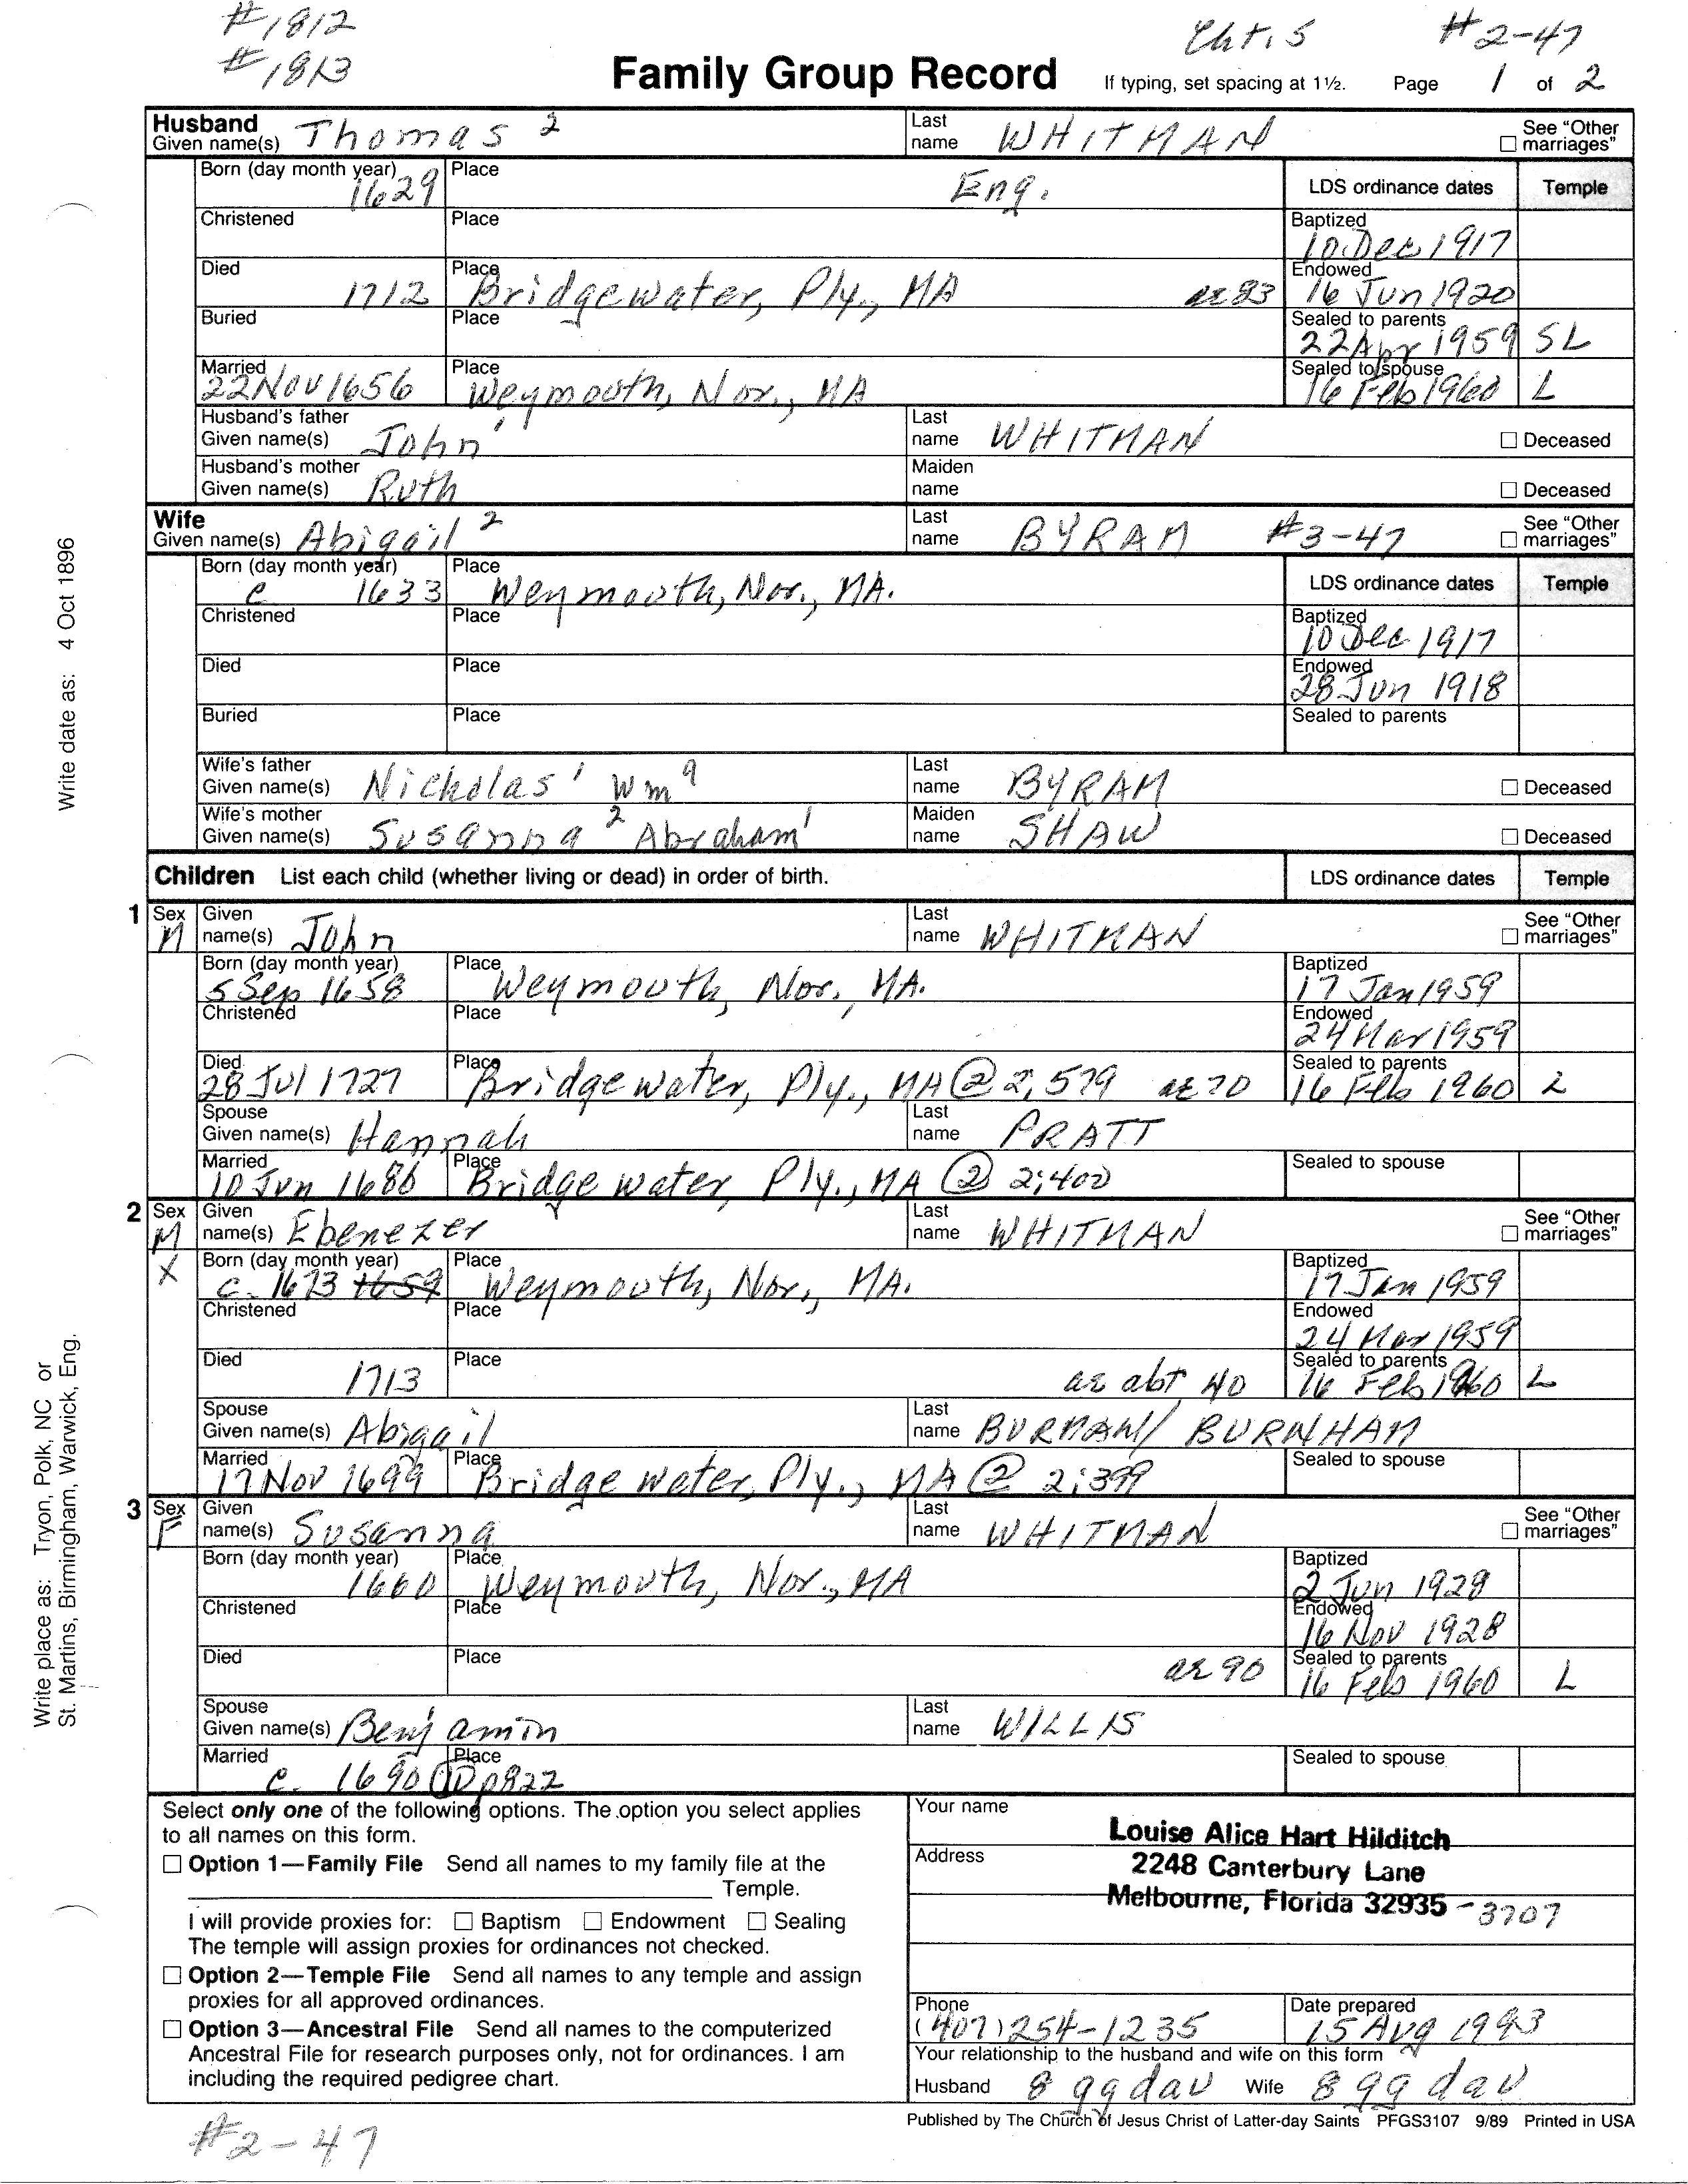 #1812
#1813
Cht. 5 #2-47
Family Group Record If typing, set spacing at 1½. Page 1 of 2
Husband
Given name(s) Thomas 2 Last name WHITMAN ☐ See "Other marriages"
Born (day month year) 1629 Place Eng. LDS ordinance dates Temple
Christened Place Baptized 10 Dec 1917
Died 1712 Place Bridgewater, Ply., MA ae 83 Endowed 16 Jun 1920
Buried Place Sealed to parents 22 Apr 1959 SL
Married 22 Nov 1656 Place Weymouth, Nor., MA Sealed to spouse 16 Feb 1960 L
Husband's father
Given name(s) John 1 Last name WHITMAN ☐ Deceased
Husband's mother
Given name(s) Ruth Maiden name ☐ Deceased
Wife
Given name(s) Abigail 2 Last name BYRAM #3-47 ☐ See "Other marriages"
Born (day month year) c 1633 Place Weymouth, Nor., MA. LDS ordinance dates Temple
Christened Place Baptized 10 Dec 1917
Died Place Endowed 28 Jun 1918
Buried Place Sealed to parents
Wife's father
Given name(s) Nicholas 1 Wm 9 Last name BYRAM ☐ Deceased
Wife's mother
Given name(s) Susanna 2 Abraham 1 Maiden name SHAW ☐ Deceased
Children List each child (whether living or dead) in order of birth. LDS ordinance dates Temple
1 Sex M Given name(s) John Last name WHITMAN ☐ See "Other marriages"
Born (day month year) 5 Sep 1658 Place Weymouth, Nor., MA. Baptized 17 Jan 1959
Christened Place Endowed 24 Mar 1959
Died 28 Jul 1727 Place Bridgewater, Ply., MA @ 2;579 ae 70 Sealed to parents 16 Feb 1960 L
Spouse
Given name(s) Hannah Last name PRATT
Married 10 Jun 1686 Place Bridgewater, Ply., MA @ 2;400 Sealed to spouse
2 Sex M Given name(s) Ebenezer Last name WHITMAN ☐ See "Other marriages"
X Born (day month year) c. 1673 1659 Place Weymouth, Nor., MA. Baptized 17 Jan 1959
Christened Place Endowed 24 Mar 1959
Died 1713 Place ae abt 40 Sealed to parents 16 Feb 1960 L
Spouse
Given name(s) Abigail Last name BURMAN/ BURNHAM
Married 17 Nov 1699 Place Bridgewater, Ply., MA @ 2;399 Sealed to spouse
3 Sex F Given name(s) Susanna Last name WHITMAN ☐ See "Other marriages"
Born (day month year) 1660 Place Weymouth, Nor., MA Baptized 2 Jun 1928
Christened Place Endowed 16 Nov 1928
Died Place ae 90 Sealed to parents 16 Feb 1960 L
Spouse
Given name(s) Benjamin Last name WILLIS
Married c. 1690 p822 Place Sealed to spouse
Select only one of the following options. The option you select applies
to all names on this form.
☐ Option 1—Family File Send all names to my family file at the
Temple.
I will provide proxies for: ☐ Baptism ☐ Endowment ☐ Sealing
The temple will assign proxies for ordinances not checked.
☐ Option 2—Temple File Send all names to any temple and assign
proxies for all approved ordinances.
☐ Option 3—Ancestral File Send all names to the computerized
Ancestral File for research purposes only, not for ordinances. I am
including the required pedigree chart.
Your name Louise Alice Hart Hilditch
Address 2248 Canterbury Lane
Melbourne, Florida 32935 -3707
Phone (407) 254-1235 Date prepared 15 Aug 1993
Your relationship to the husband and wife on this form
Husband 8 gg dau Wife 8 gg dau
Published by The Church of Jesus Christ of Latter-day Saints PFGS3107 9/89 Printed in USA
#2-47
Write date as: 4 Oct 1896
Write place as: Tryon, Polk, NC or
St. Martins, Birmingham, Warwick, Eng.